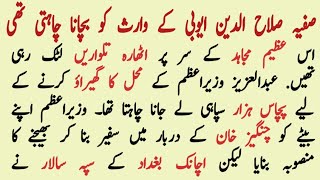 صفیہ صلاح الدین ایوبی کے وارث کو بچانا چاہتی تھی
اس عظیم مجاہد کے سر پر اٹھارہ تلواریں لٹک رہی
تھیں۔ عبدالعزیز وزیراعظم کے محل کا گھیراؤ کرنے کے
لیے پچاس ہزار سپاہی لے جانا چاہتا تھا۔ وزیراعظم اپنے
بیٹے کو چنگیز خان کے دربار میں سفیر بنا کر بھیجنے کا
منصوبہ بنایا لیکن اچانک بغداد کے سپہ سالار نے